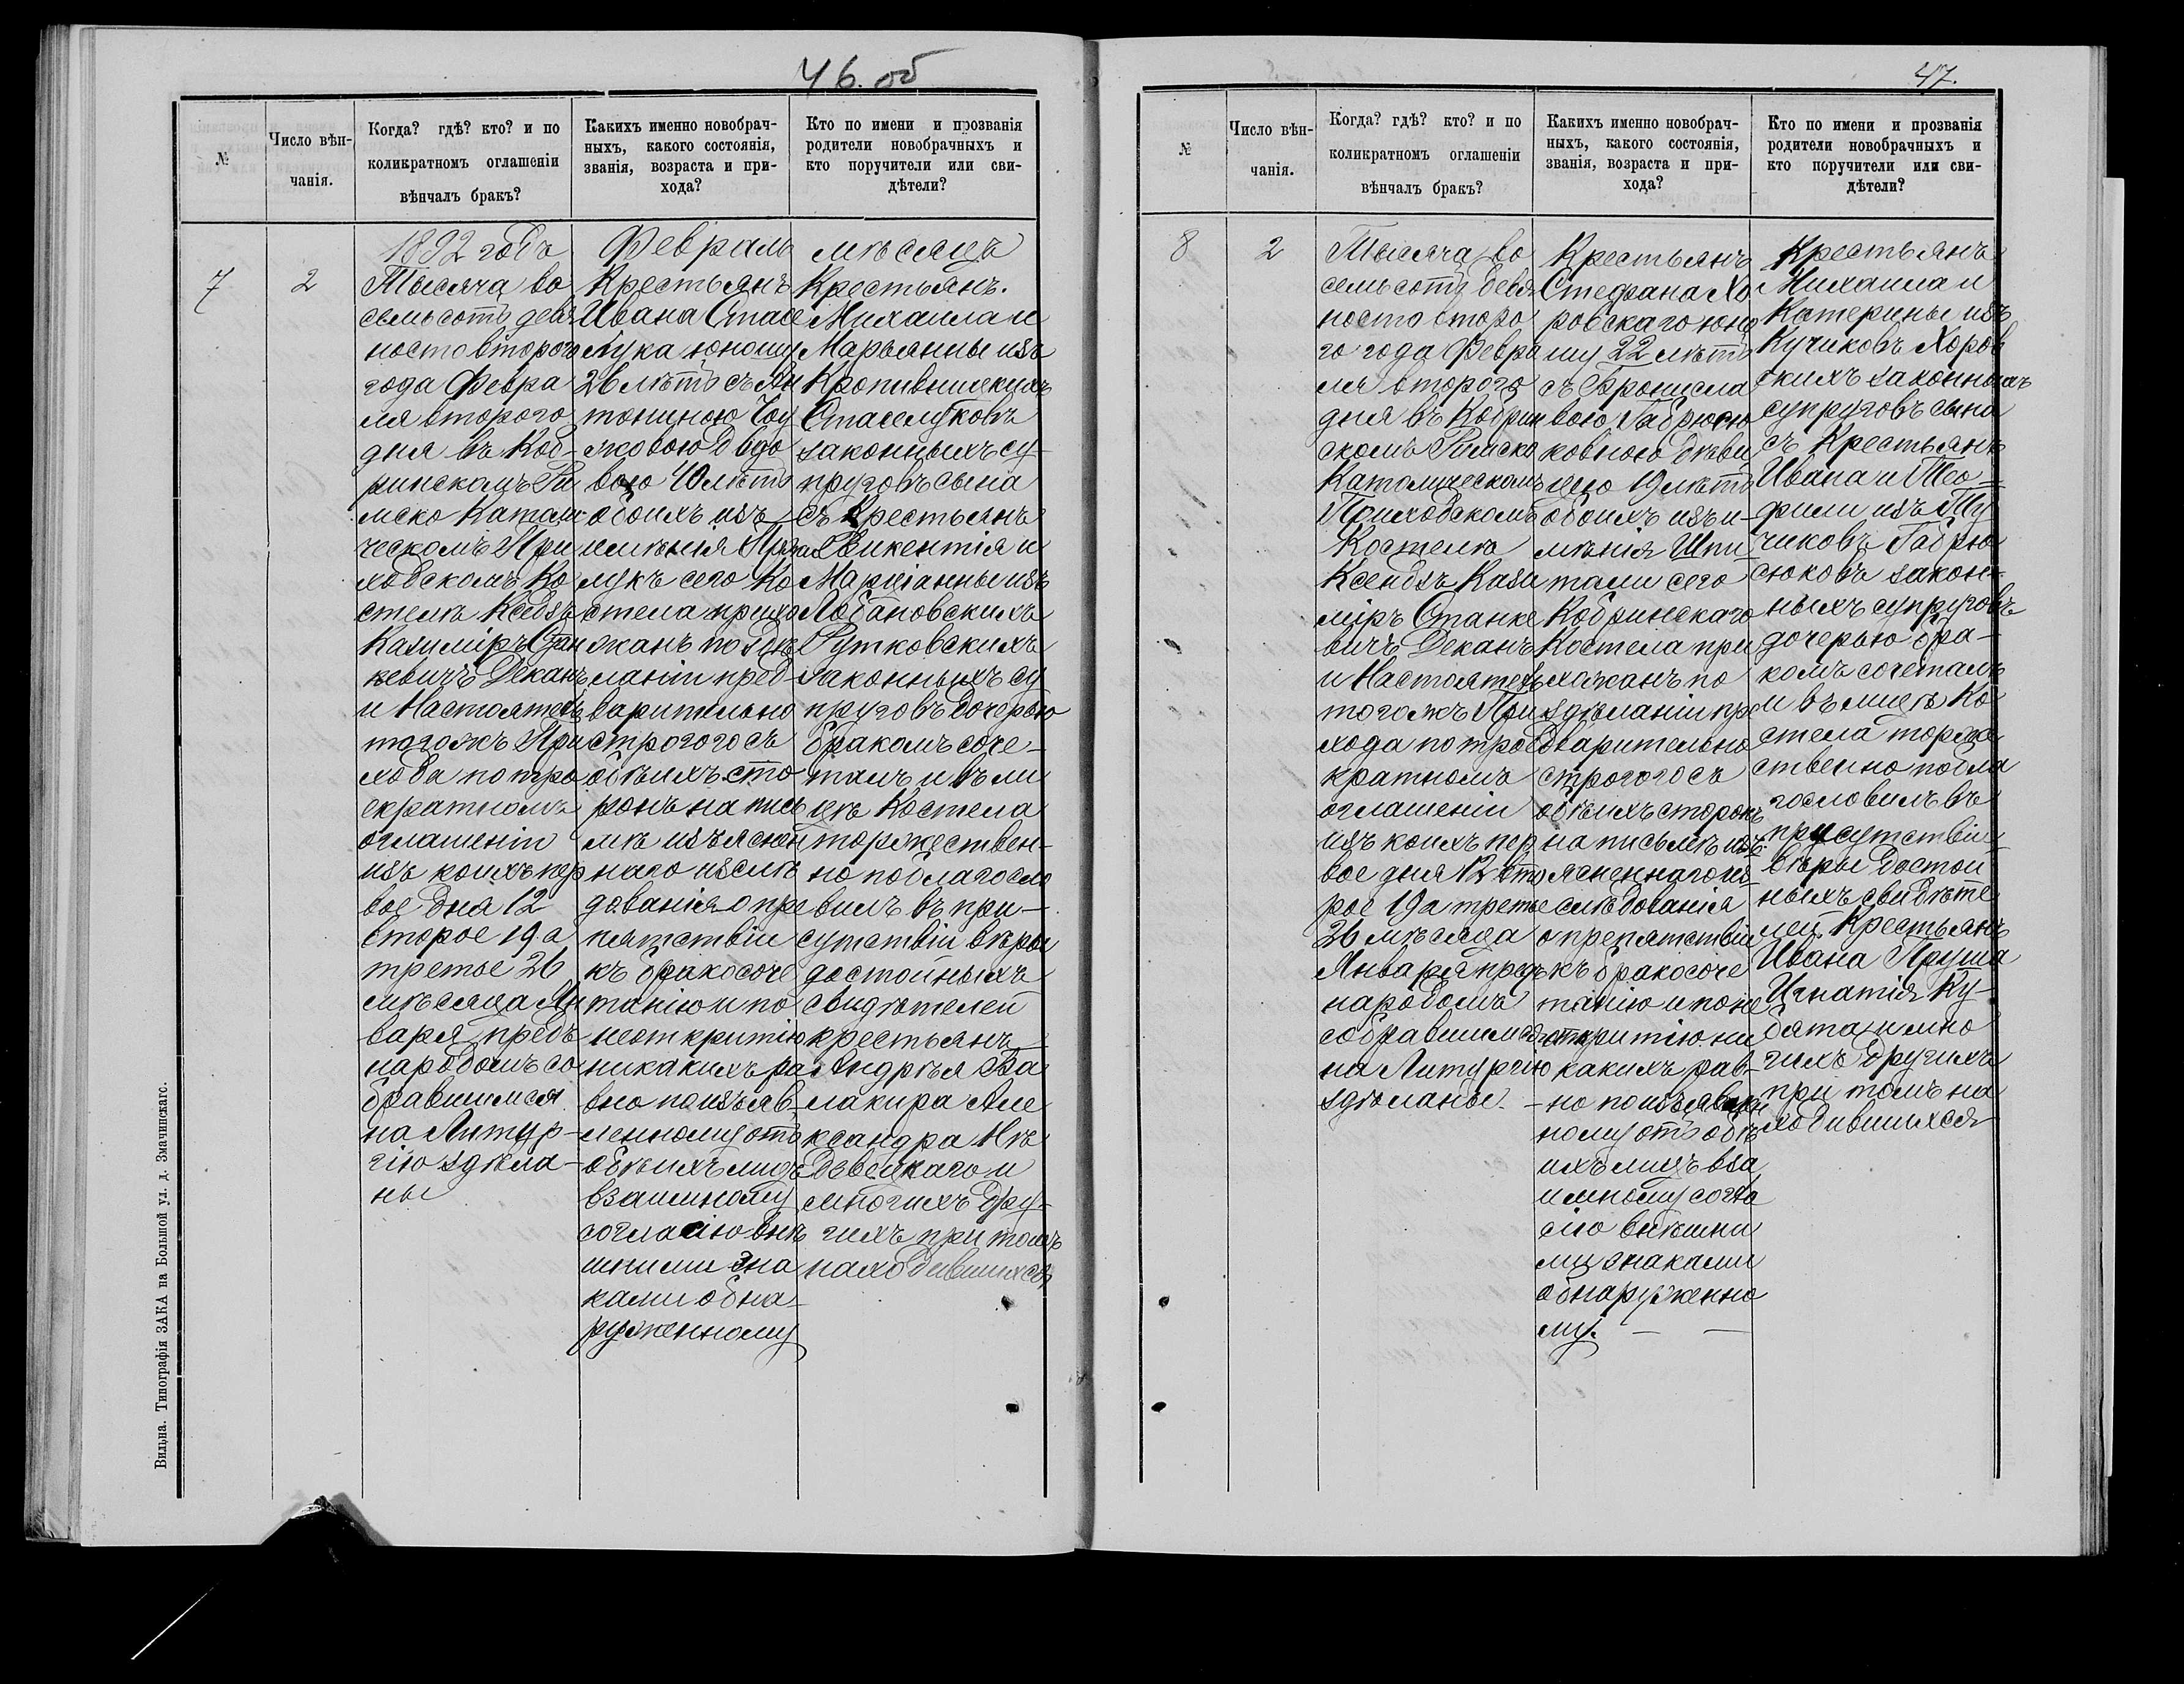 46.об
№
Число вѣн-
чанія.
Когда? гдѣ? кто? и по
коликратномъ оглашеніи
вѣнчалъ бракъ?
Какихъ именно новобрач-
ныхъ, какого состоянія,
званія, возраста и при-
хода?
Кто по имени и прозванія
родители новобрачныхъ и
кто поручители или сви-
дѣтели?
1892 годъ Февраль мѣсяцъ
7
2
Тысяча во
семьсотъ девя
носто второго
года Февра
ля второго
дня въ Коб-
ринскомъ Ри
мско Католи
ческомъ При
ходскомъ Ко
стелѣ Ксендзъ
Казиміръ Стан
кевичъ Деканъ
и Настоятель
тогожъ При
хода по тро
екратномъ
оглашеніи
изъ коихъ пер
вое дня 12
второе 19 а
третье 26
мѣсяца Ян
варя предъ
народомъ со
бравшимся
на Литур-
гію здѣла-
ны
Крестьянъ
Ивана Стасе
лука юношу
26 лѣтъ съ Ан
тониною
жовою вдо
вою 40 лѣтъ
обоихъ изъ
имѣнія
лукъ сего Ко
стела прихо
жанъ по здѣ
ланіи пред-
варительно
строгого съ
обѣихъ сто-
ронъ на пись
мѣ изъяснен
наго изслѣ
дованія о пре
пятствіи
къ бракосоче
танію и по
неоткритію
никакихъ ра
вно по изъяв-
ленному отъ
обѣихъ лицъ
взаимному
согласію внѣ
шними зна
ками обна-
руженному
Крестьянъ.
Михаила и
Марьянны изъ
Кропивницкихъ
Стаселуковъ
законныхъ су-
пруговъ сына
съ Крестьянъ
Викентія и
Маріанны изъ
Лобановскихъ
Рутковскихъ
законныхъ су
пруговъ дочерью
бракомъ соче-
талъ и въ ли
цѣ Костела
торжествен-
но поблагосло
вилъ въ при-
сутствіи вѣры
достойныхъ
свидѣтелей
крестьянъ
Андрѣя Ва
лакира Але
ксандра Нѣ
дзвецкаго и
многихъ дру-
гихъ при томъ
находившихся
Вильна. Типографія ЗАКА на Большой ул. д. Змачинскаго.
47.
№
Число вѣн-
чанія.
Когда? гдѣ? кто? и по
коликратномъ оглашеніи
вѣнчалъ бракъ?
Какихъ именно новобрач-
ныхъ, какого состоянія,
званія, возраста и при-
хода?
Кто по имени и прозванія
родители новобрачныхъ и
кто поручители или сви-
дѣтели?
8
2
Тысяча во
семьсотъ девя
носто второ
го года Февра
ля второго
дня въ Кобрин
скомъ Римско
Католическомъ
Приходскомъ
Костелѣ
Ксендзъ Кази
міръ Станке
вичъ Деканъ
и Настоятель
тогожъ При
хода по трое
кратномъ
оглашеніи
изъ коихъ пер
вое дня 12 вто
рое 19 а третье
26 мѣсяца
Января предъ
народомъ
собравшимся
на Литургію
здѣланы.
Крестьянъ
Стефана Хо
ровскаго юно
шу 22 лѣтъ
съ Брониcла
вою Габрюсю
ковною дѣви
цею 19 лѣтъ
обоихъ изъ и-
мѣнія Шпи
тали сего
Кобринскаго
Костела при
хожанъ по
здѣланіи пре
дварительно
строгого съ
обѣихъ сторонъ
на письмѣ изъ
ясненнаго из
слѣдованія
о препятствіи
къ бракосоче
танію и по не
откритію ни
какихъ рав-
но по изъявлен
ному отъ обѣ
ихъ лицъ вза
имному согла
сію внѣшни
ми знаками
обнаруженно
му. — —
Крестьянъ
Михаила и
Катерины изъ
Кучиковъ Хоров
скихъ законныхъ
супруговъ сына
съ Крестьянъ
Ивана и Тео-
фили изъ
чиковъ Габрю
сюковъ закон-
ныхъ супруговъ
дочерью бра-
комъ сочеталъ
и въ лицѣ Ко
стела торже
ственно побла
гословилъ въ
присутствіи
вѣры достой
ныхъ свидѣте
лей Крестьянъ
Ивана Пруша
Игнатія Ку-
бята и мно
гихъ другихъ
при томъ на
ходившихся